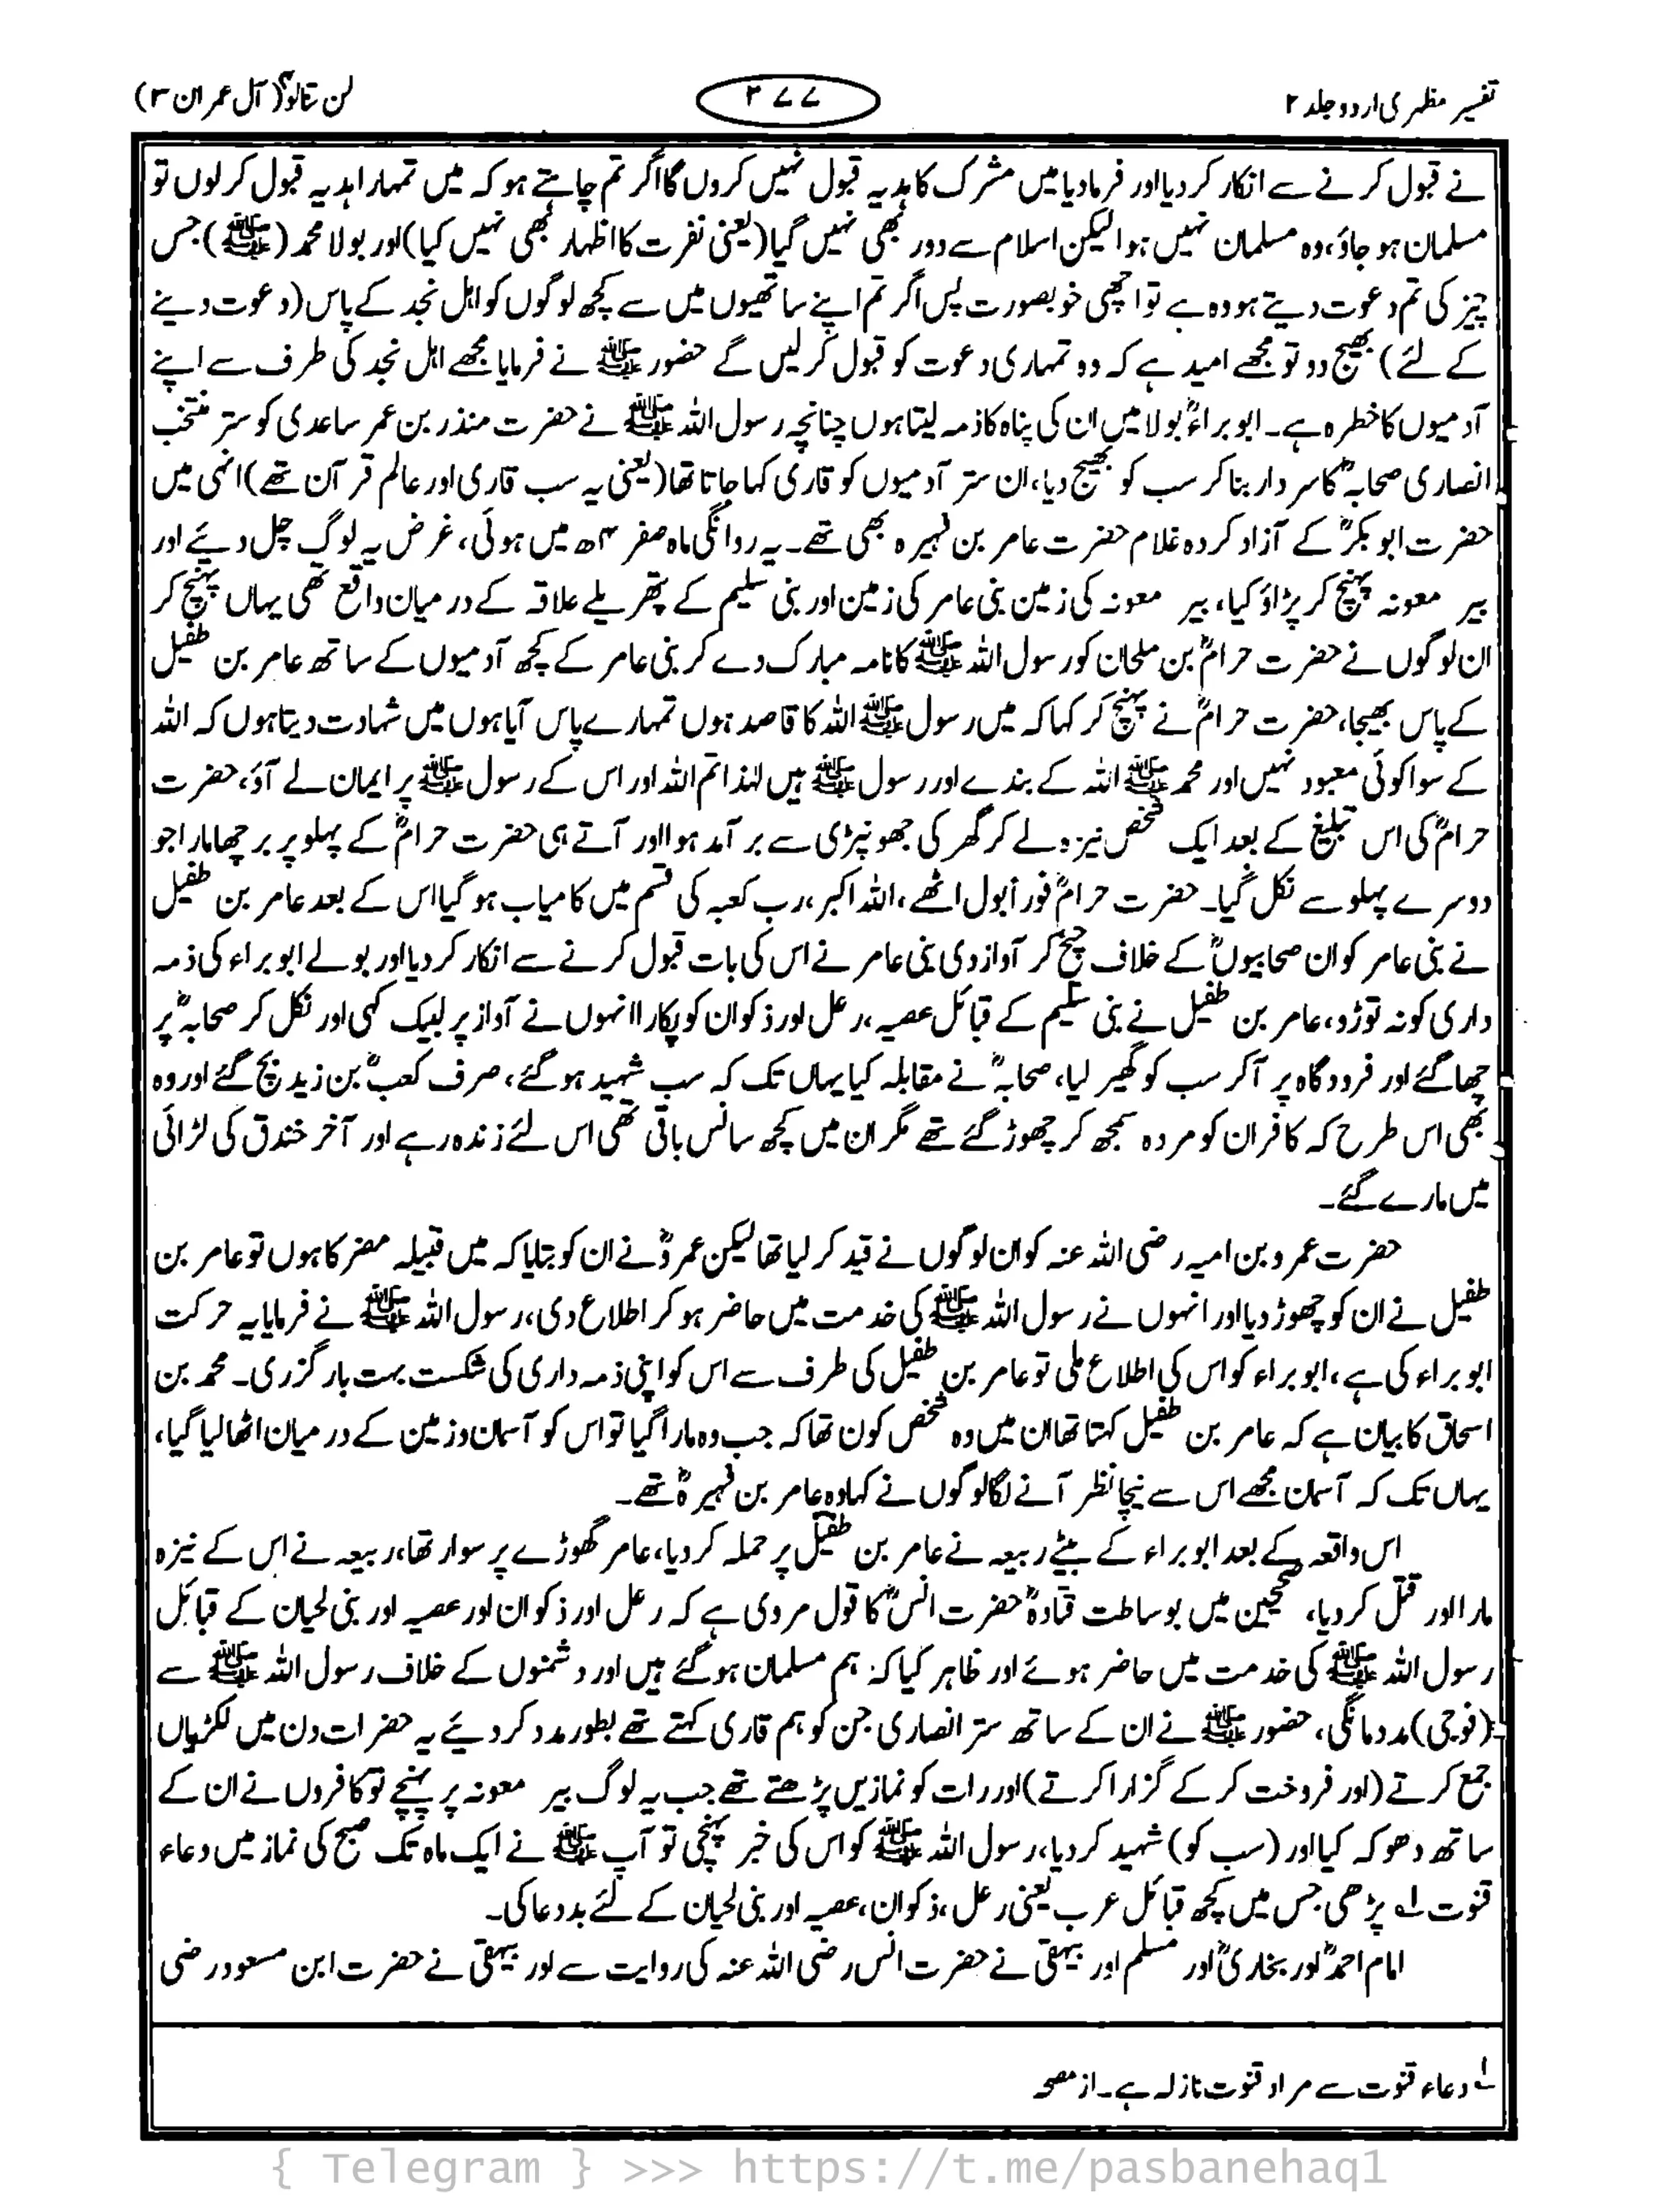 تفسیر مظہری اردو جلد ۲
۲۷۷
لن تنالوا (آل عمران ۳)
نے قبول کرنے سے انکار کر دیا اور فرما دیا میں مشرک کا ہدیہ قبول نہیں کروں گا اگر تم چاہتے ہو کہ میں تمہارا ہدیہ قبول کر لوں تو
مسلمان ہو جاؤ، وہ مسلمان نہیں ہوا لیکن اسلام سے دور بھی نہیں گیا (یعنی نفرت کا اظہار بھی نہیں کیا) اور بولا محمد (ﷺ) جس
چیز کی تم دعوت دیتے ہو وہ ہے تو اچھی خوبصورت پس اگر تم اپنے ساتھیوں میں سے کچھ لوگوں کو اہل نجد کے پاس (دعوت دینے
کے لئے) بھیج دو تو مجھے امید ہے کہ وہ تمہاری دعوت کو قبول کر لیں گے حضور ﷺ نے فرمایا مجھے اہل نجد کی طرف سے اپنے
آدمیوں کا خطرہ ہے۔ ابو براءؓ بولا میں ان کی پناہ کا ذمہ لیتا ہوں چنانچہ رسول اللہ ﷺ نے حضرت منذر بن عمر ساعدی کو ستر منتخب
انصاری صحابہؓ کا سردار بنا کر سب کو بھیج دیا، ان ستر آدمیوں کو قاری کہا جاتا تھا (یعنی یہ سب قاری اور عالم قرآن تھے) انہی میں
حضرت ابو بکرؓ کے آزاد کردہ غلام حضرت عامر بن فہیرہ بھی تھے۔ یہ روانگی ماہ صفر ۴ھ میں ہوئی، غرض یہ لوگ چل دیئے اور
بیر معونہ پہنچ کر پڑاؤ کیا، بیر معونہ کی زمین بنی عامر کی زمین اور بنی سلیم کے پتھریلے علاقہ کے درمیان واقع تھی یہاں پہنچ کر
ان لوگوں نے حضرت حرامؓ بن ملحان کو رسول اللہ ﷺ کا نامہ مبارک دے کر بنی عامر کے کچھ آدمیوں کے ساتھ عامر بن طفیل
کے پاس بھیجا، حضرت حرامؓ نے پہنچ کر کہا کہ میں رسول ﷺ اللہ کا قاصد ہوں تمہارے پاس آیا ہوں میں شہادت دیتا ہوں کہ اللہ
کے سوا کوئی معبود نہیں اور محمد ﷺ اللہ کے بندے اور رسول ﷺ ہیں لہٰذا تم اللہ اور اس کے رسول ﷺ پر ایمان لے آؤ، حضرت
حرامؓ کی اس تبلیغ کے بعد ایک شخص نیزہ لے کر گھر کی جھونپڑی سے برآمد ہوا اور آتے ہی حضرت حرامؓ کے پہلو پر برچھا مارا جو
دوسرے پہلو سے نکل گیا۔ حضرت حرامؓ فوراً بول اٹھے، اللہ اکبر، رب کعبہ کی قسم میں کامیاب ہو گیا اس کے بعد عامر بن طفیل
نے بنی عامر کو ان صحابیوںؓ کے خلاف چیخ کر آواز دی بنی عامر نے اس کی بات قبول کرنے سے انکار کر دیا اور بولے ابو براء کی ذمہ
داری کو نہ توڑو، عامر بن طفیل نے بنی سلیم کے قبائل عصیہ، رعل اور ذکوان کو پکارا انہوں نے آواز پر لبیک کہی اور نکل کر صحابہؓ پر
چھا گئے اور فرودگاہ پر آ کر سب کو گھیر لیا، صحابہؓ نے مقابلہ کیا یہاں تک کہ سب شہید ہو گئے، صرف کعبؓ بن زید بچ گئے اور وہ
بھی اس طرح کہ کافر ان کو مردہ سمجھ کر چھوڑ گئے تھے مگر ان میں کچھ سانس باقی تھی اس لئے زندہ رہے اور آخر خندق کی لڑائی
میں مارے گئے۔
حضرت عمرو بن امیہ رضی اللہ عنہ کو ان لوگوں نے قید کر لیا تھا لیکن عمروؓ نے ان کو بتلایا کہ میں قبیلہ مضر کا ہوں تو عامر بن
طفیل نے ان کو چھوڑ دیا اور انہوں نے رسول اللہ ﷺ کی خدمت میں حاضر ہو کر اطلاع دی، رسول اللہ ﷺ نے فرمایا یہ حرکت
ابو براء کی ہے، ابو براء کو اس کی اطلاع ملی تو عامر بن طفیل کی طرف سے اس کو اپنی ذمہ داری کی شکست بہت بار گزری۔ محمد بن
اسحاق کا بیان ہے کہ عامر بن طفیل کہتا تھا ان میں وہ شخص کون تھا کہ جب وہ مارا گیا تو اس کو آسمان و زمین کے درمیان اٹھا لیا گیا،
یہاں تک کہ آسمان مجھے اس سے نیچا نظر آنے لگا لوگوں نے کہا وہ عامر بن فہیرہؓ تھے۔
اس واقعہ کے بعد ابو براء کے بیٹے ربیعہ نے عامر بن طفیل پر حملہ کر دیا، عامر گھوڑے پر سوار تھا، ربیعہ نے اس کے نیزہ
مارا اور قتل کر دیا، صحیحین میں بوساطت قتادہؓ حضرت انسؓ کا قول مروی ہے کہ رعل اور ذکوان اور عصیہ اور بنی لحیان کے قبائل
رسول اللہ ﷺ کی خدمت میں حاضر ہوئے اور ظاہر کیا کہ ہم مسلمان ہو گئے ہیں اور دشمنوں کے خلاف رسول اللہ ﷺ سے
(فوجی) مدد مانگی، حضور ﷺ نے ان کے ساتھ ستر انصاری جن کو ہم قاری کہتے تھے بطور مدد کر دیئے یہ حضرات دن میں لکڑیاں
جمع کرتے (اور فروخت کر کے گزارا کرتے) اور رات کو نمازیں پڑھتے تھے جب یہ لوگ بیر معونہ پر پہنچے تو کافروں نے ان کے
ساتھ دھوکہ کیا اور (سب کو) شہید کر دیا، رسول اللہ ﷺ کو اس کی خبر پہنچی تو آپ ﷺ نے ایک ماہ تک صبح کی نماز میں دعاء
قنوت ۱؎ پڑھی جس میں کچھ قبائل عرب یعنی رعل، ذکوان، عصیہ اور بنی لحیان کے لئے بددعا کی۔
امام احمدؒ اور بخاریؒ اور مسلم اور بیہقی نے حضرت انس رضی اللہ عنہ کی روایت سے اور بیہقی نے حضرت ابن مسعود رضی
۱؎ دعاء قنوت سے مراد قنوت نازلہ ہے۔ از مصحح
{ Telegram } >>> https://t.me/pasbanehaq1